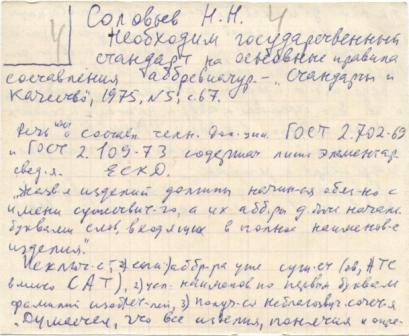 4
Соловьев Н.Н. 4
Необходим государственный
стандарт на основные правила
составления аббревиатур. – "Стандарты и
качество", 1975, №5, с.67.
Речь идет о составл. техн. док-ции. ГОСТ 2.702-69
и ГОСТ 2.109-73 содержат лишь элементар.
свед-я. ЕСКД.
"Назв-я изделий должны начин-ся обяз-но с
имени существит-го, а их абб-ры д. быть начальн.
буквами слов, входящих в полное наименов-е
изделия".
Исключ-е, 1) если аббр-ра уже сущ-ет (ов, АТС
вместо САТ), 2) наименов по первым буквам
фамилий изобрет-лей, 3) получ-ся неблагозвуч. сочет-я
"Думается, что все изделия, понятия и